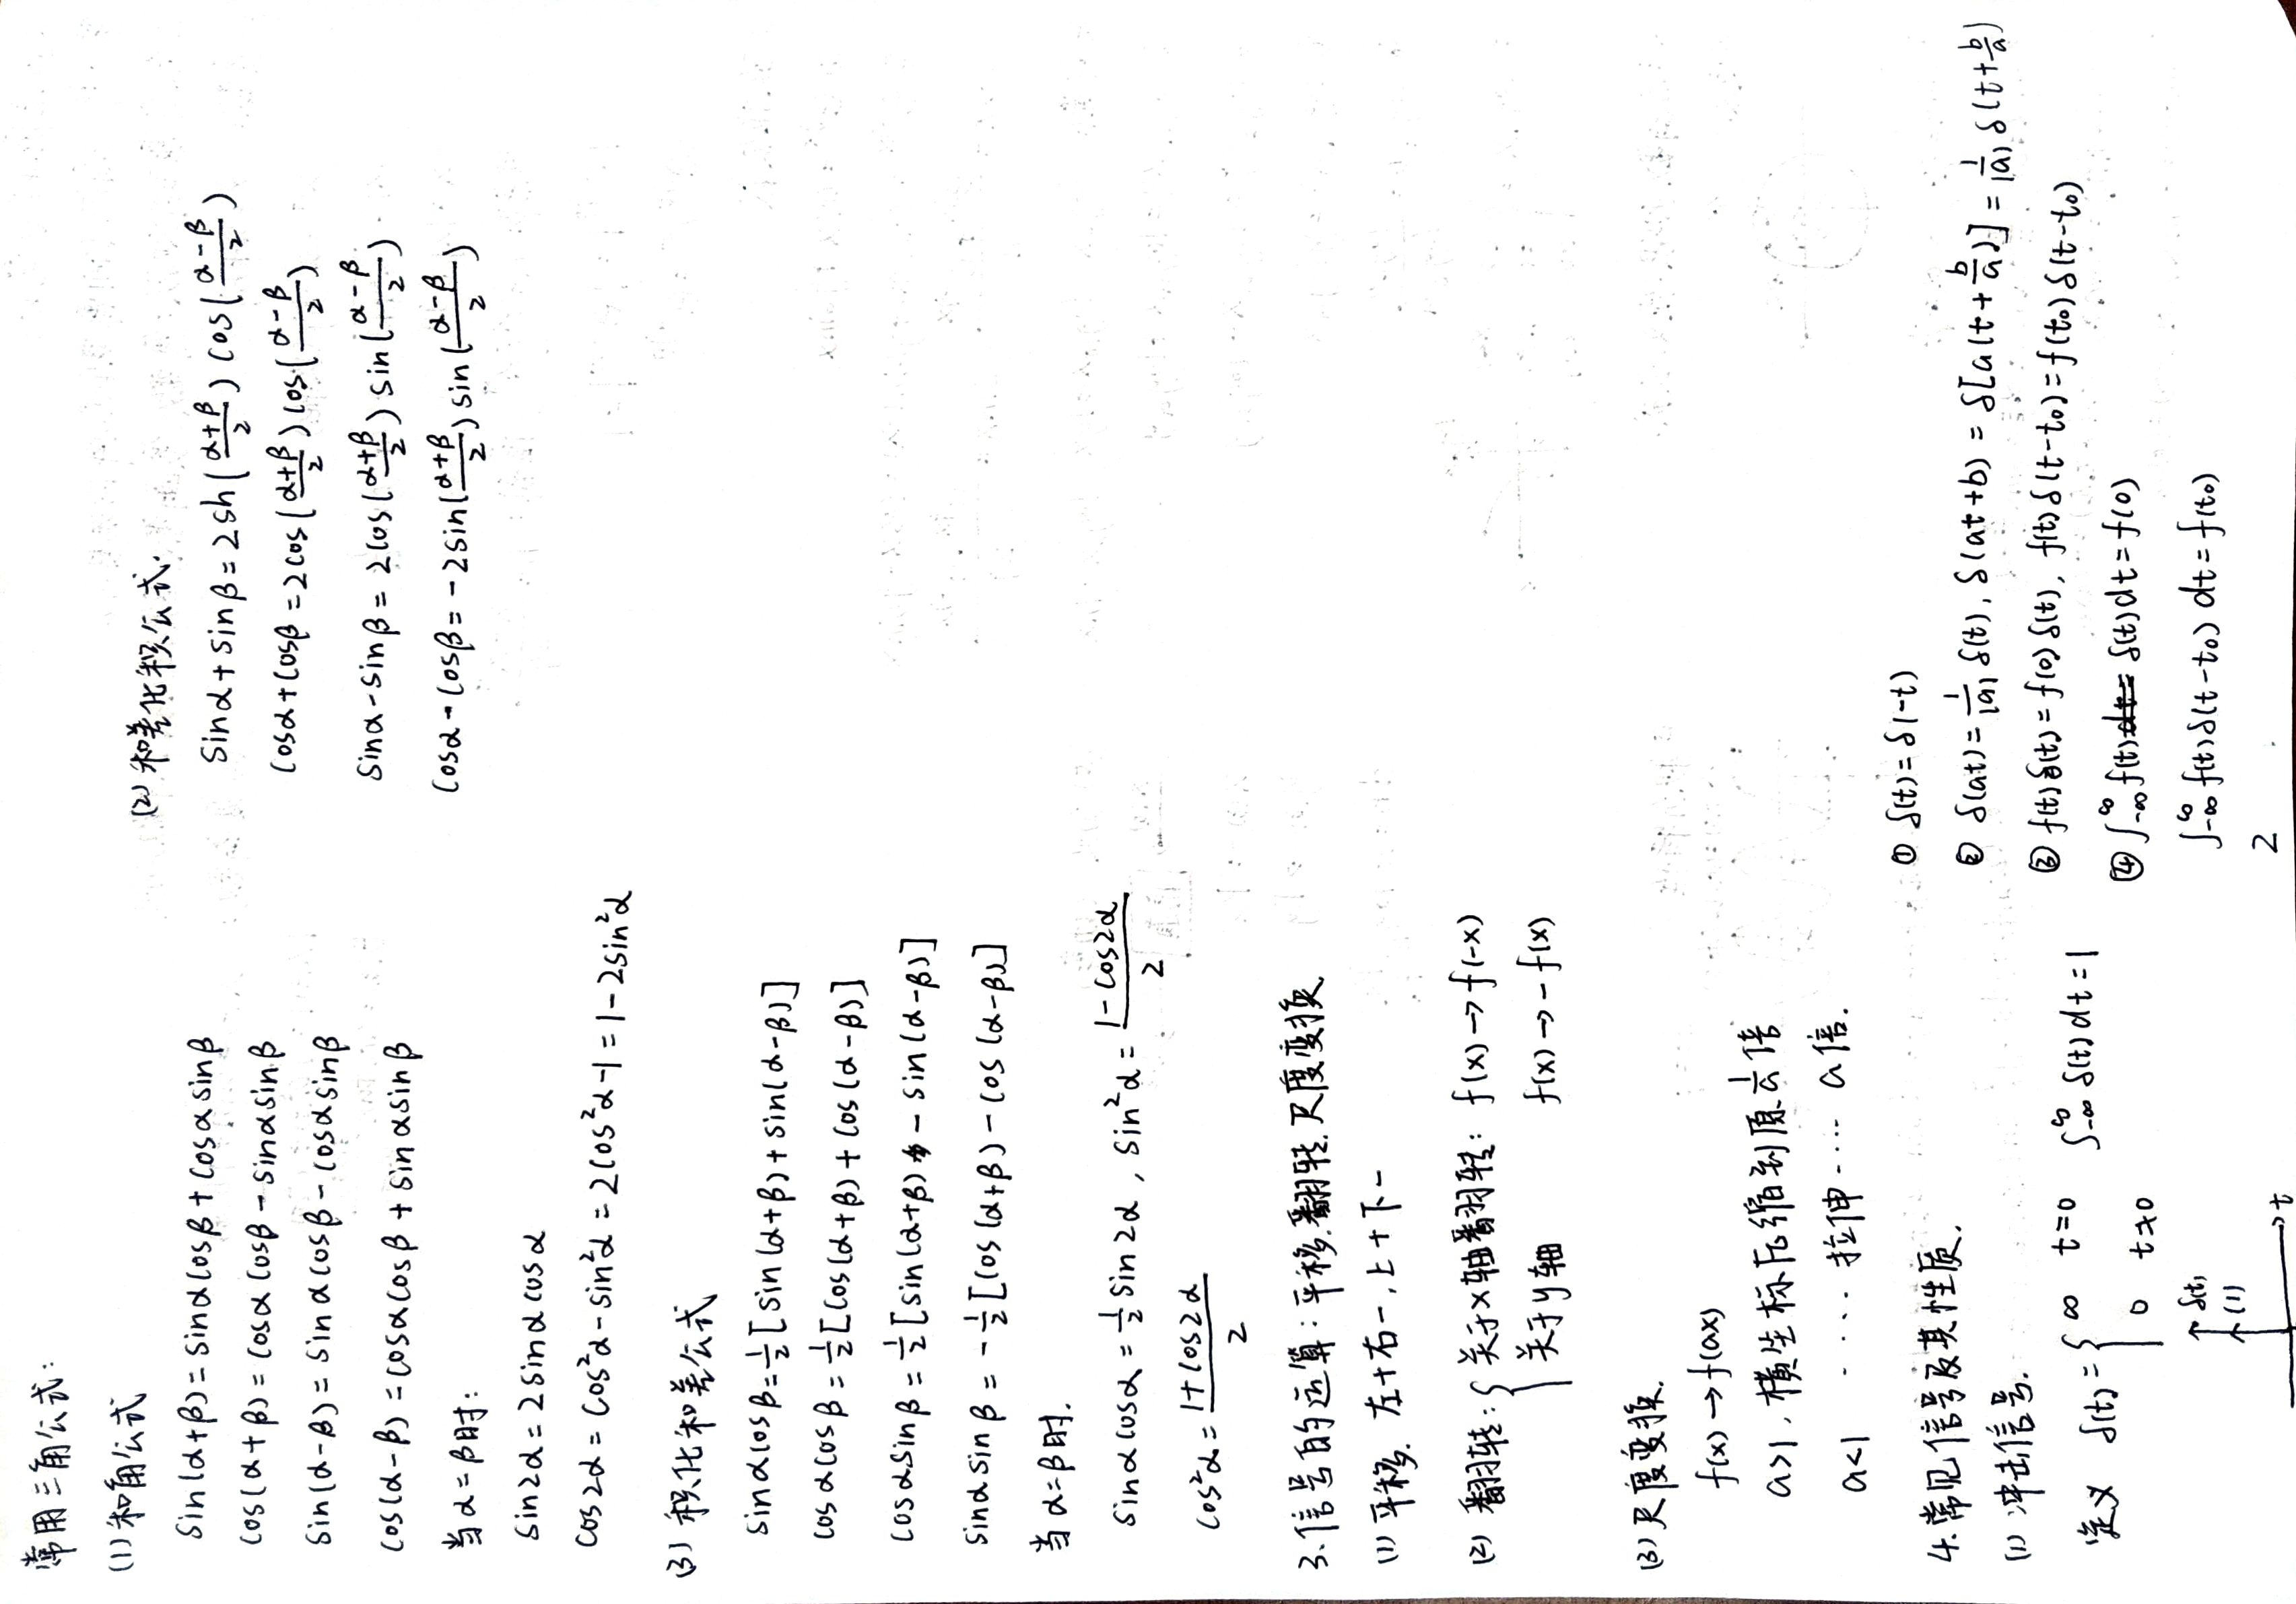 常用三角公式:
(1) 和角公式
sin(α+β)=sinαcosβ+cosαsinβ
cos(α+β)=cosαcosβ-sinαsinβ
sin(α-β)=sinαcosβ-cosαsinβ
cos(α-β)=cosαcosβ+sinαsinβ
当α=β时:
sin2α=2sinαcosα
cos2α=cos²α-sin²α=2cos²α-1=1-2sin²α
(2) 和差化积公式.
sinα+sinβ=2sin(\frac{α+β}{2})cos(\frac{α-β}{2})
cosα+cosβ=2cos(\frac{α+β}{2})cos(\frac{α-β}{2})
sinα-sinβ=2cos(\frac{α+β}{2})sin(\frac{α-β}{2})
cosα-cosβ=-2sin(\frac{α+β}{2})sin(\frac{α-β}{2})
(3) 积化和差公式
sinαcosβ=\frac{1}{2}[sin(α+β)+sin(α-β)]
cosαcosβ=\frac{1}{2}[cos(α+β)+cos(α-β)]
cosαsinβ=\frac{1}{2}[sin(α+β)-sin(α-β)]
sinαsinβ=-\frac{1}{2}[cos(α+β)-cos(α-β)]
当α=β时.
sinαcosα=\frac{1}{2}sin2α, sin²α=\frac{1-cos2α}{2}
cos²α=\frac{1+cos2α}{2}
3.信号的运算:平移.翻转.尺度变换
(1) 平移. 左+右-,上+下-
(2) 翻转:{关于x轴翻转: f(x)→f(-x)
关于y轴 f(x)→-f(x)
(3) 尺度变换.
f(x)→f(ax)
a>1, 横坐标压缩到原\frac{1}{a}倍
a<1 ····拉伸···· a倍.
4.常见信号及其性质.
(1) 冲击信号.
定义 δ(t)={∞ t=0 ∫_{-∞}^{∞}δ(t)dt=1
0 t≠0
δ(t)
(1)
t
① δ(t)=δ(-t)
② δ(at)=\frac{1}{|a|}δ(t), δ(at+b)=δ[a(t+\frac{b}{a})]=\frac{1}{|a|}δ(t+\frac{b}{a})
③ f(t)δ(t)=f(0)δ(t), f(t)δ(t-t₀)=f(t₀)δ(t-t₀)
④ ∫_{-∞}^{∞}f(t)δ(t)dt=f(0)
∫_{-∞}^{∞}f(t)δ(t-t₀)dt=f(t₀)
2